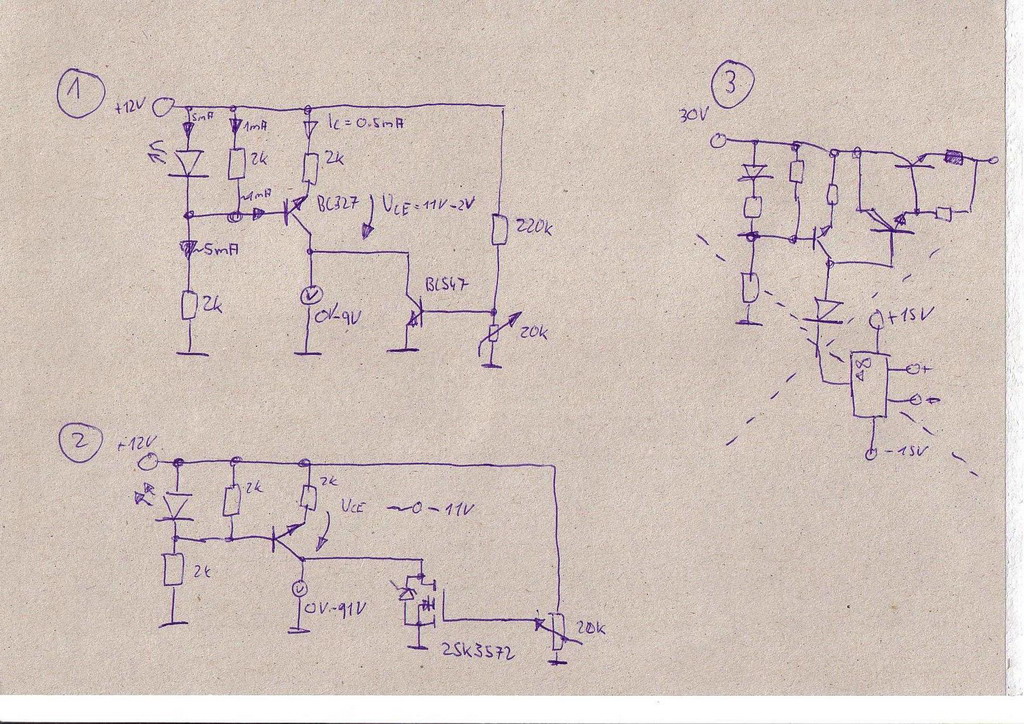 1
+12V
5mA
1mA
IC = 0.5mA
2k
2k
~1mA
BC327
UCE = 11V-2V
~5mA
220k
2k
0V-9V
BC547
20k
2
+12V
2k
2k
UCE ~0-11V
2k
0V-91V
2SK3572
20k
3
30V
+15V
+
-
-15V